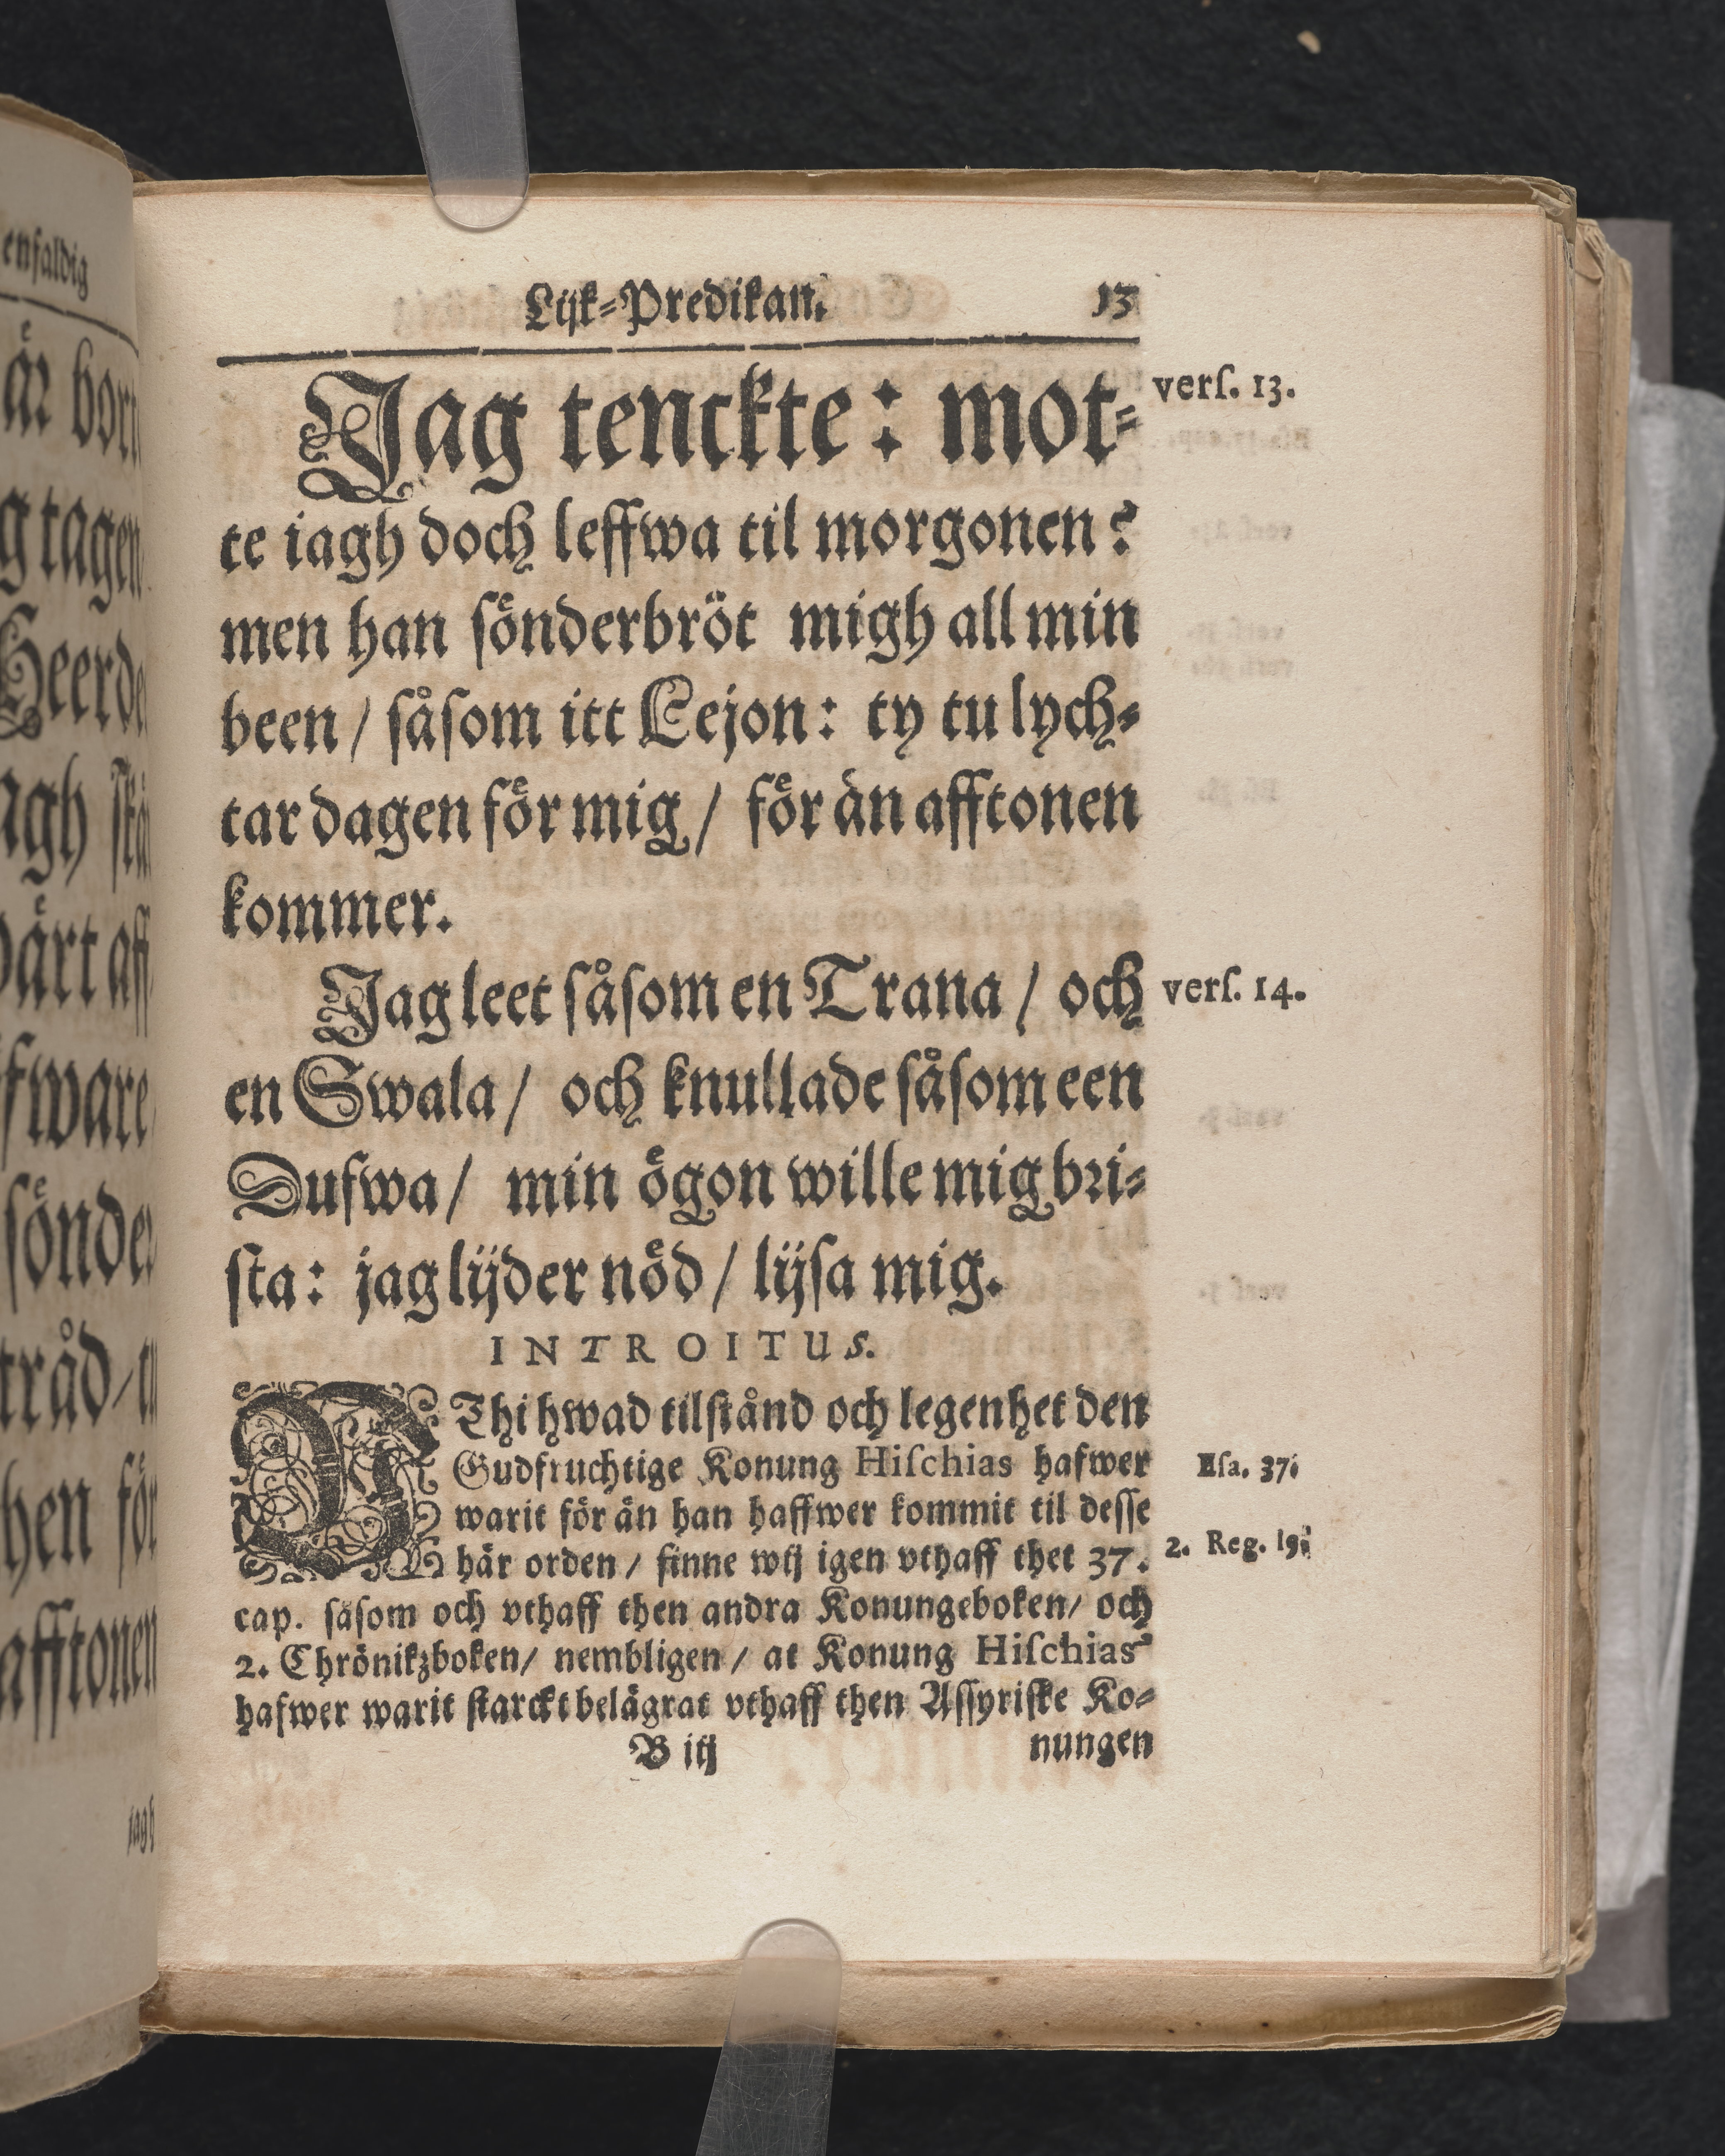 enfaldig
är bort
g tagen
Heerde
agh skä
wärt aff
fware
sönder
tråd/
hen för
afftonen
jagh
Lijk=Predikan. 13
Jag tenckte: mot= verſ. 13.
te iagh doch leffwa til morgonen?
men han ſönderbröt migh all min
been / ſåſom itt Lejon: ty tu lych=
tar dagen för mig / för än afftonen
kommer.
Jag leet ſåſom en Trana / och verſ. 14.
en Swala / och knullade ſåſom een
Dufwa / min ögon wille mig bri=
ſta: jag lijder nöd / lijſa mig.
INTROITUS.
UThi hwad tilſtånd och legenhet den
Gudfruchtige Konung Hiſchias hafwer Eſa. 37.
warit för än han haffwer kommit til deſſe
här orden / finne wij igen vthaff thet 37. 2. Reg. 19.
cap. ſåſom och vthaff then andra Konungeboken/ och
2. Chrönikzboken/ nembligen / at Konung Hiſchias
hafwer warit ſtarckt belägrat vthaff then Aſſyriſke Ko=
B iij nungen